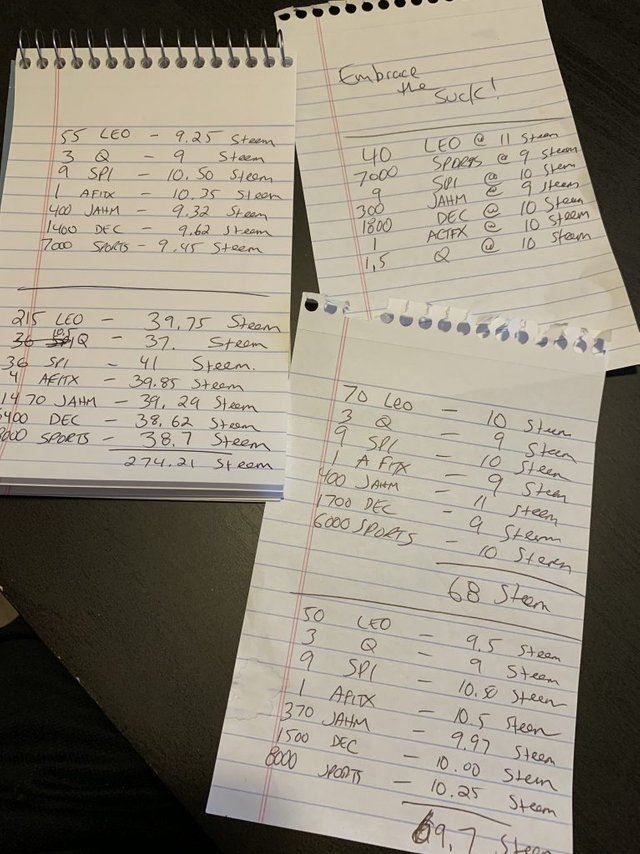 55 LEO - 9.25 Steem
3 Q - 9 Steem
9 SPI - 10.50 Steem
1 AFITX - 10.35 Steem
400 JAHM - 9.32 Steem
1400 DEC - 9.62 Steem
7000 SPORTS - 9.45 Steem
215 LEO - 39.75 Steem
10.5 Q - 37. Steem
36 SPI - 41 Steem.
4 AFITX - 39.85 Steem
1470 JAHM - 39.29 Steem
400 DEC - 38.62 Steem
000 SPORTS - 38.7 Steem
274.21 Steem
Embrace
the
Suck!
40 LEO @ 11 Steem
7000 SPORTS @ 9 Steem
9 SPI @ 10 Steem
300 JAHM @ 9 Steem
1800 DEC @ 10 Steem
1 ACTFX @ 10 Steem
1,5 Q @ 10 Steem
70 LEO - 10 Steem
3 Q - 9 Steem
9 SPI - 10 Steem
1 AFITX - 9 Steem
400 JAHM - 11 Steem
1700 DEC - 9 Steem
6000 SPORTS - 10 Steem
68 Steem
50 LEO - 9.5 Steem
3 Q - 9 Steem
9 SPI - 10.50 Steem
1 AFITX - 10.5 Steem
370 JAHM - 9.97 Steem
1500 DEC - 10.00 Steem
8000 SPORTS - 10.25 Steem
69,7 Steem